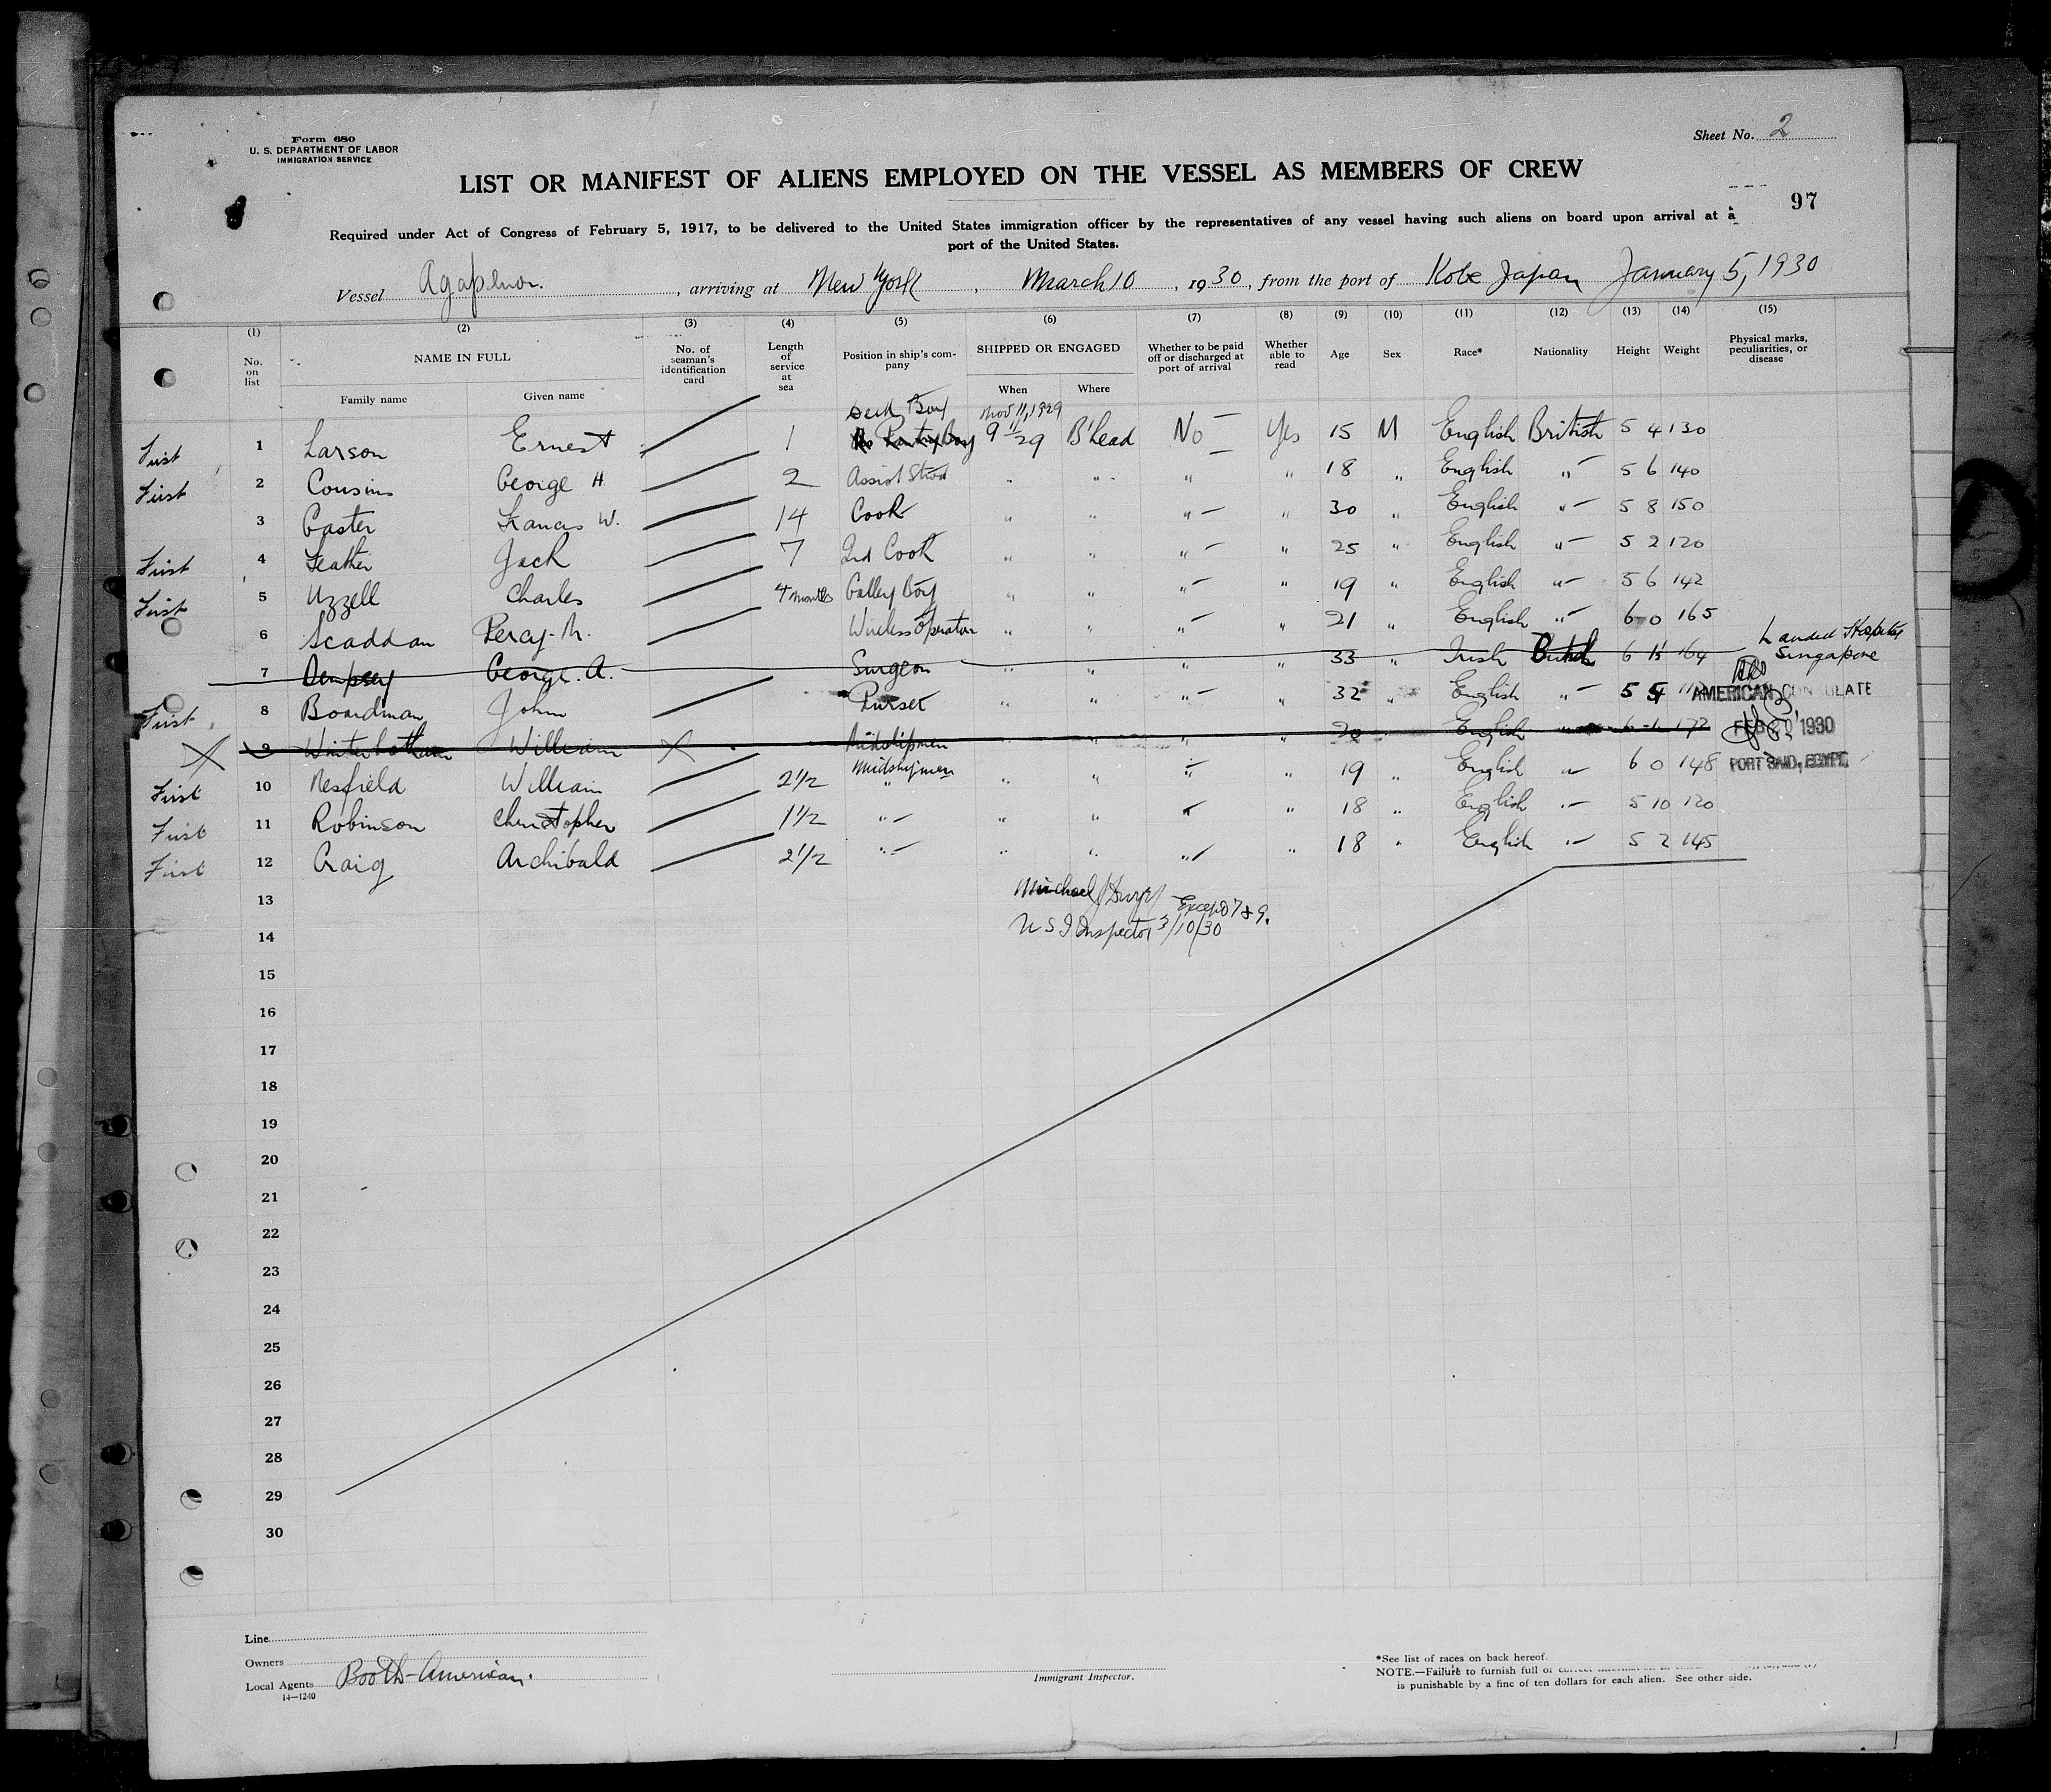 Form 680
U. S. DEPARTMENT OF LABOR
IMMIGRATION SERVICE
Sheet No. 2
LIST OR MANIFEST OF ALIENS EMPLOYED ON THE VESSEL AS MEMBERS OF CREW
97
Required under Act of Congress of February 5, 1917, to be delivered to the United States immigration officer by the representatives of any vessel having such aliens on board upon arrival at a
port of the United States.
Vessel Agapenor. , arriving at New York , March 10 , 1930, from the port of Kobe Japan January 5, 1930
(1) (2) (3) (4) (5) (6) (7) (8) (9) (10) (11) (12) (13) (14) (15)
No. on list
NAME IN FULL
Family name Given name
No. of seaman's identification card
Length of service at sea
Position in ship's company
SHIPPED OR ENGAGED
When Where
Whether to be paid off or discharged at port of arrival
Whether able to read
Age Sex Race* Nationality Height Weight
Physical marks, peculiarities, or disease
Deck Boy Nov 11, 1929
First 1 Larson Ernest 1 Pantry Boy 9 11/29 B'head No Yes 15 M English British 5 4 130
First 2 Cousins George H 2 Assist Stwd " " " " 18 " English " 5 6 140
3 Caster Francis W. 14 Cook " " " " 30 " English " 5 8 150
First 4 Feather Jack 7 2nd Cook " " " " 25 " English " 5 2 120
First 5 Uzzell Charles 4 months Galley Boy " " " " 19 " English " 5 6 142
6 Scaddan Percy. Wireless Operator " " " " 21 " English " 6 0 165
Landed Hospital
Singapore
7 Dempsey George. A. Surgeon " " " " 33 " Irish 6 164
First 8 Boardman John Purser " " " " 32 " English " 5 4
AMERICAN CONSULATE
9 Winterbotham William Midshipmen " " " " 20 English " 172
FEB 1930
First 10 Nesfield William 2 1/2 Midshipmen " " " " 19 " English " 6 0 148
PORT SAID, EGYPT.
First 11 Robinson Christopher 1 1/2 " " " " 18 " English " 5 10 120
First 12 Craig Archibald 2 1/2 " " " " " 18 " English " 5 2 145
13 Michael Except 7 & 9.
14 U S I Inspector 3/10/30
15
16
17
18
19
20
21
22
23
24
25
26
27
28
29
30
Line
Owners
Local Agents Booth-American.
14—1240
Immigrant Inspector.
*See list of races on back hereof.
NOTE.—Failure to furnish full or correct information in
is punishable by a fine of ten dollars for each alien. See other side.